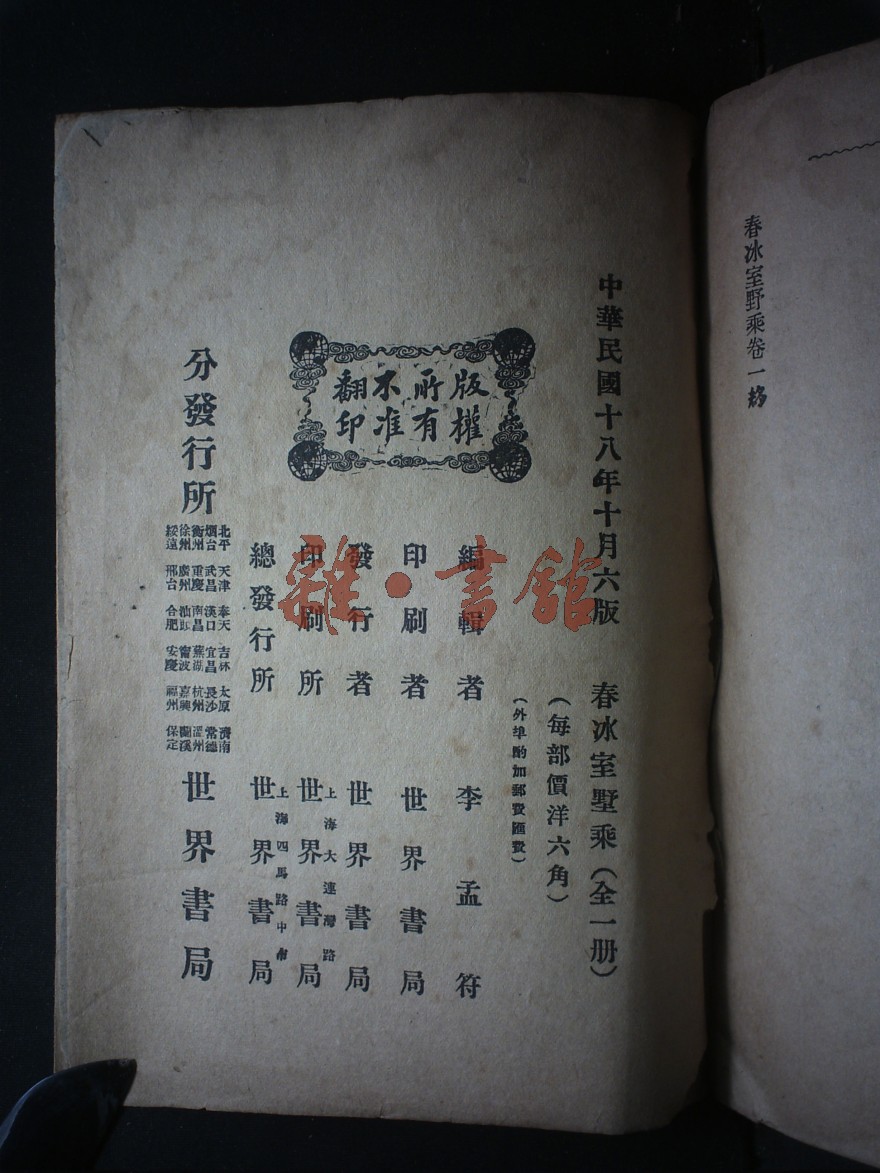 春冰室野乘卷一終
中華民國十八年十月六版
春冰室墅乘（全一册）
（每部價洋六角）
（外埠酌加郵費匯費）
版權所有
不准翻印
編輯者 李孟符
印刷者 世界書局
發行者 世界書局
印刷所 上海大連灣路 世界書局
總發行所 上海四馬路中市 世界書局
分發行所
北平 天津 奉天 吉林 太原 濟南
烟台 武昌 漢口 宜昌 長沙 常德
衡州 重慶 南昌 蕪湖 杭州 溫州
徐州 廣州 汕頭 甯波 嘉興 蘭溪
綏遠 邢台 合肥 安慶 福州 保定
世界書局
雜·書館